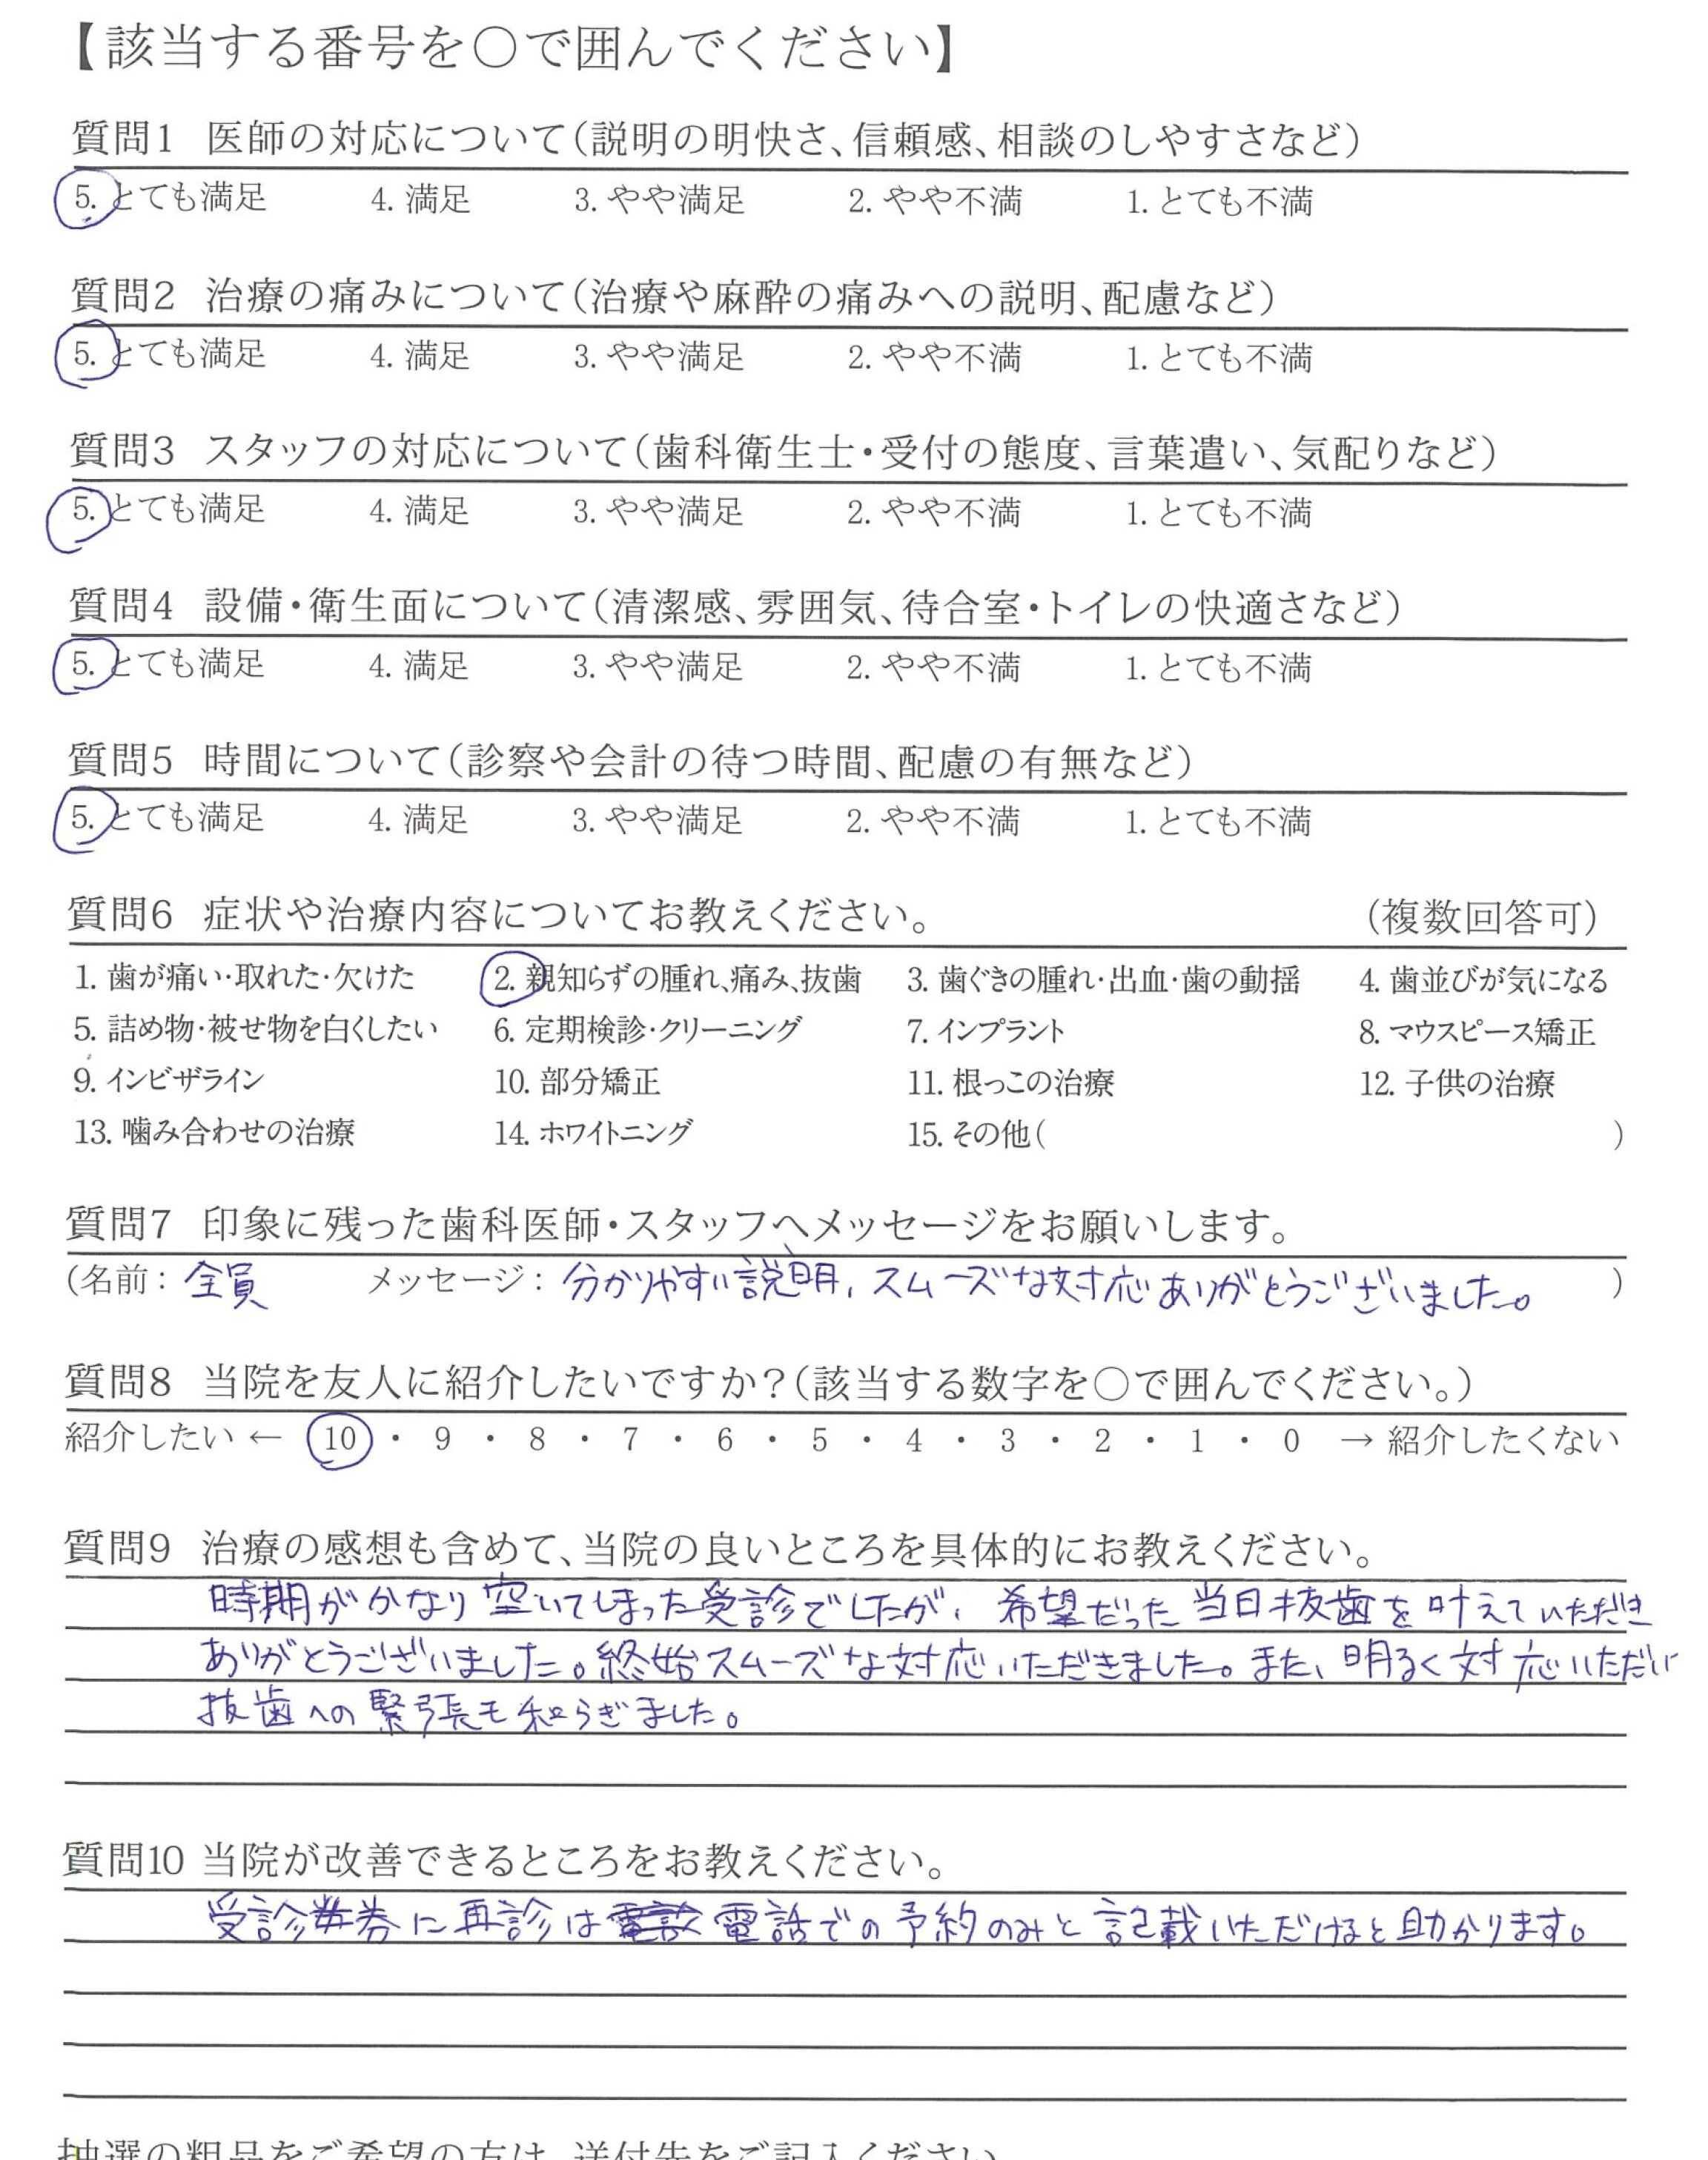 【該当する番号を〇で囲んでください】
質問1 医師の対応について(説明の明快さ、信頼感、相談のしやすさなど)
5. とても満足 4. 満足 3. やや満足 2. やや不満 1. とても不満
質問2 治療の痛みについて(治療や麻酔の痛みへの説明、配慮など)
5. とても満足 4. 満足 3. やや満足 2. やや不満 1. とても不満
質問3 スタッフの対応について(歯科衛生士・受付の態度、言葉遣い、気配りなど)
5. とても満足 4. 満足 3. やや満足 2. やや不満 1. とても不満
質問4 設備・衛生面について(清潔感、雰囲気、待合室・トイレの快適さなど)
5. とても満足 4. 満足 3. やや満足 2. やや不満 1. とても不満
質問5 時間について(診察や会計の待つ時間、配慮の有無など)
5. とても満足 4. 満足 3. やや満足 2. やや不満 1. とても不満
質問6 症状や治療内容についてお教えください。 (複数回答可)
1. 歯が痛い・取れた・欠けた 2. 親知らずの腫れ、痛み、抜歯 3. 歯ぐきの腫れ・出血・歯の動揺 4. 歯並びが気になる
5. 詰め物・被せ物を白くしたい 6. 定期検診・クリーニング 7. インプラント 8. マウスピース矯正
9. インビザライン 10. 部分矯正 11. 根っこの治療 12. 子供の治療
13. 噛み合わせの治療 14. ホワイトニング 15. その他( )
質問7 印象に残った歯科医師・スタッフへメッセージをお願いします。
(名前: 全員 メッセージ: 分かりやすい説明、スムーズな対応ありがとうございました。 )
質問8 当院を友人に紹介したいですか?(該当する数字を〇で囲んでください。)
紹介したい ← 10 ・ 9 ・ 8 ・ 7 ・ 6 ・ 5 ・ 4 ・ 3 ・ 2 ・ 1 ・ 0 → 紹介したくない
質問9 治療の感想も含めて、当院の良いところを具体的にお教えください。
時期がかなり空いてしまった受診でしたが、希望だった当日抜歯を叶えていただき
ありがとうございました。終始スムーズな対応いただきました。また、明るく対応いただい
抜歯への緊張も和らぎました。
質問10 当院が改善できるところをお教えください。
受診券に再診は電話での予約のみと記載いただけると助かります。
抽選の粗品をご希望の方は、送付先をご記入ください